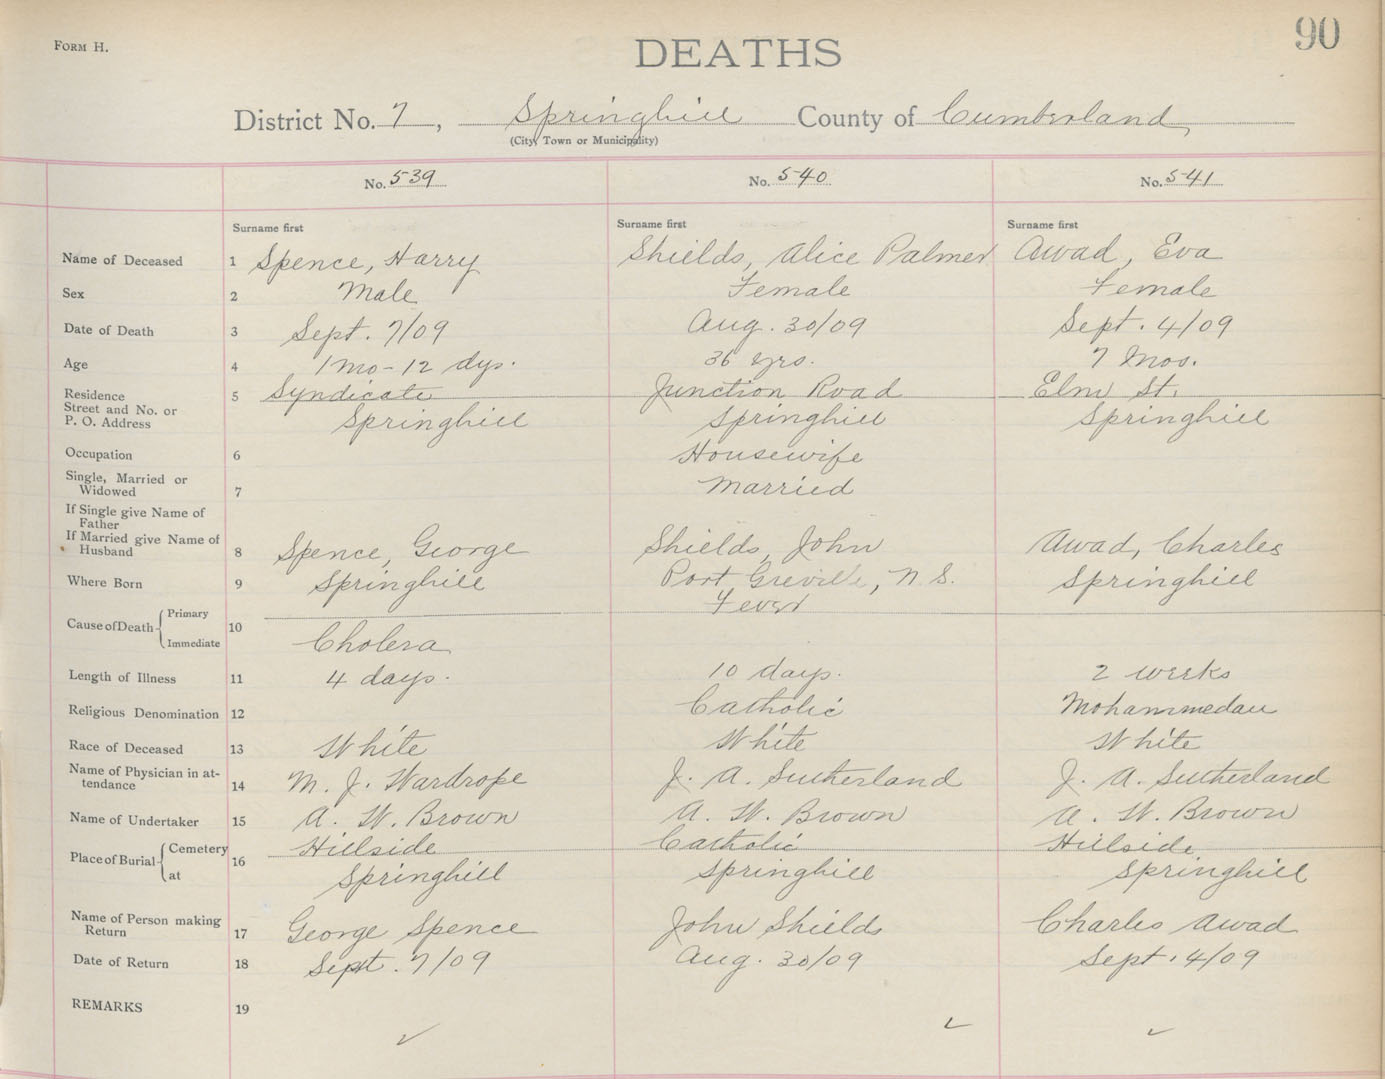 FORM H.
90
DEATHS
District No. 7, Springhill County of Cumberland
(City, Town or Municipality)
No. 539 No. 540 No. 541
Surname first Surname first Surname first
Name of Deceased 1 Spence, Harry Shields, Alice Palmer Awad, Eva
Sex 2 Male Female Female
Date of Death 3 Sept. 7/09 Aug. 30/09 Sept. 4/09
Age 4 1 mo - 12 dys. 36 yrs. 7 Mos.
Residence 5 Syndicate Junction Road Elm St.
Street and No. or
P. O. Address Springhill Springhill Springhill
Occupation 6 Housewife
Single, Married or
Widowed 7 Married
If Single give Name of
Father
If Married give Name of
Husband 8 Spence, George Shields, John Awad, Charles
Where Born 9 Springhill Port Greville, N.S. Springhill
Cause of Death Primary 10 Fever
Immediate Cholera
Length of Illness 11 4 days. 10 days. 2 weeks
Religious Denomination 12 Catholic Mohammedan
Race of Deceased 13 White White White
Name of Physician in at-
tendance 14 M. J. Wardrope J. A. Sutherland J. A. Sutherland
Name of Undertaker 15 A. W. Brown A. W. Brown A. W. Brown
Place of Burial Cemetery 16 Hillside Catholic Hillside
at Springhill Springhill Springhill
Name of Person making
Return 17 George Spence John Shields Charles Awad
Date of Return 18 Sept. 7/09 Aug. 30/09 Sept. 4/09
REMARKS 19